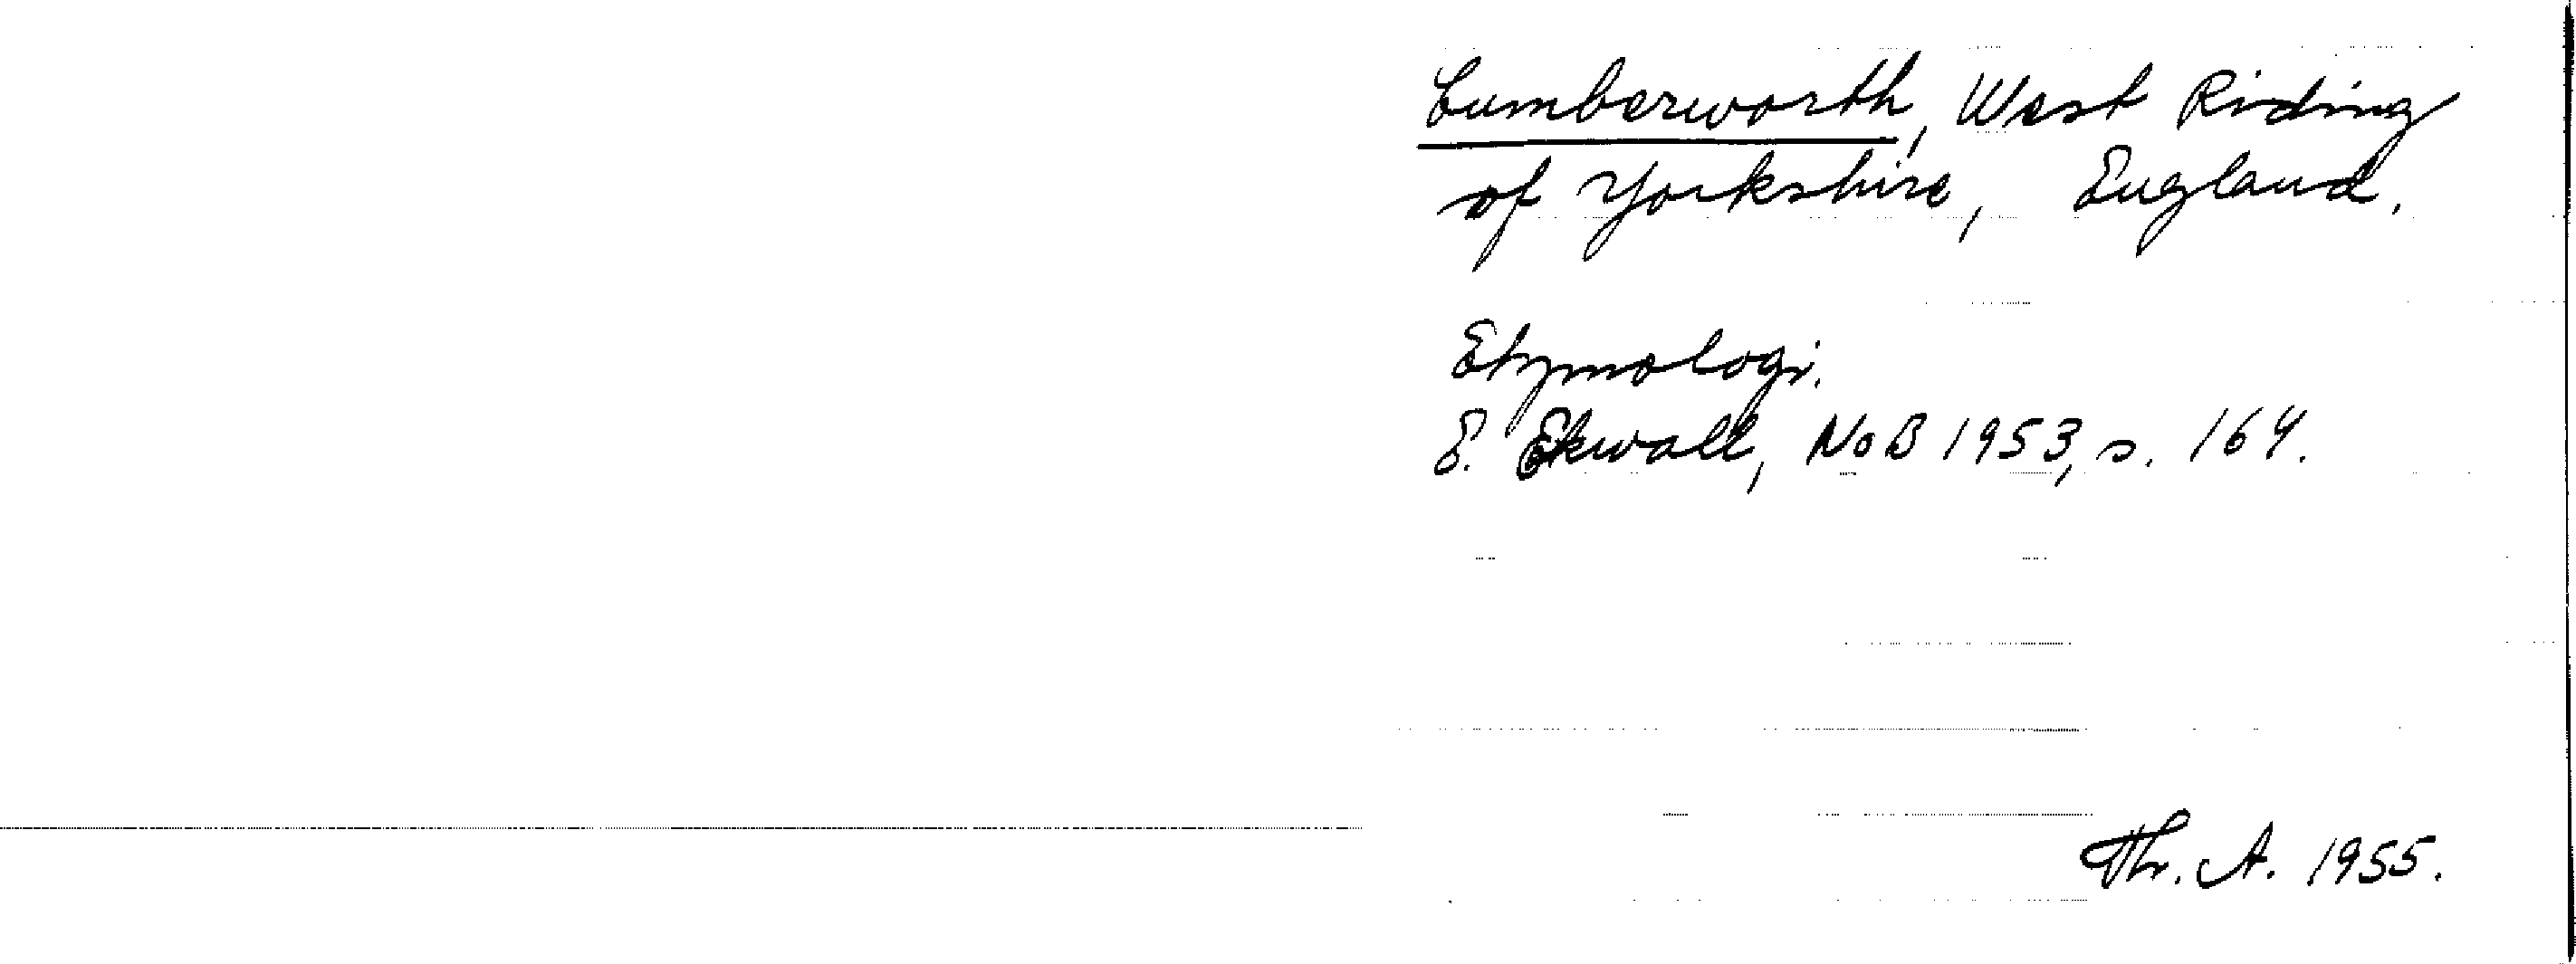 Cumberworth, West Riding
of Yorkshire, England.
Etymologi.
E. Ekwall, NoB 1953, s. 164.
Th. A. 1955.